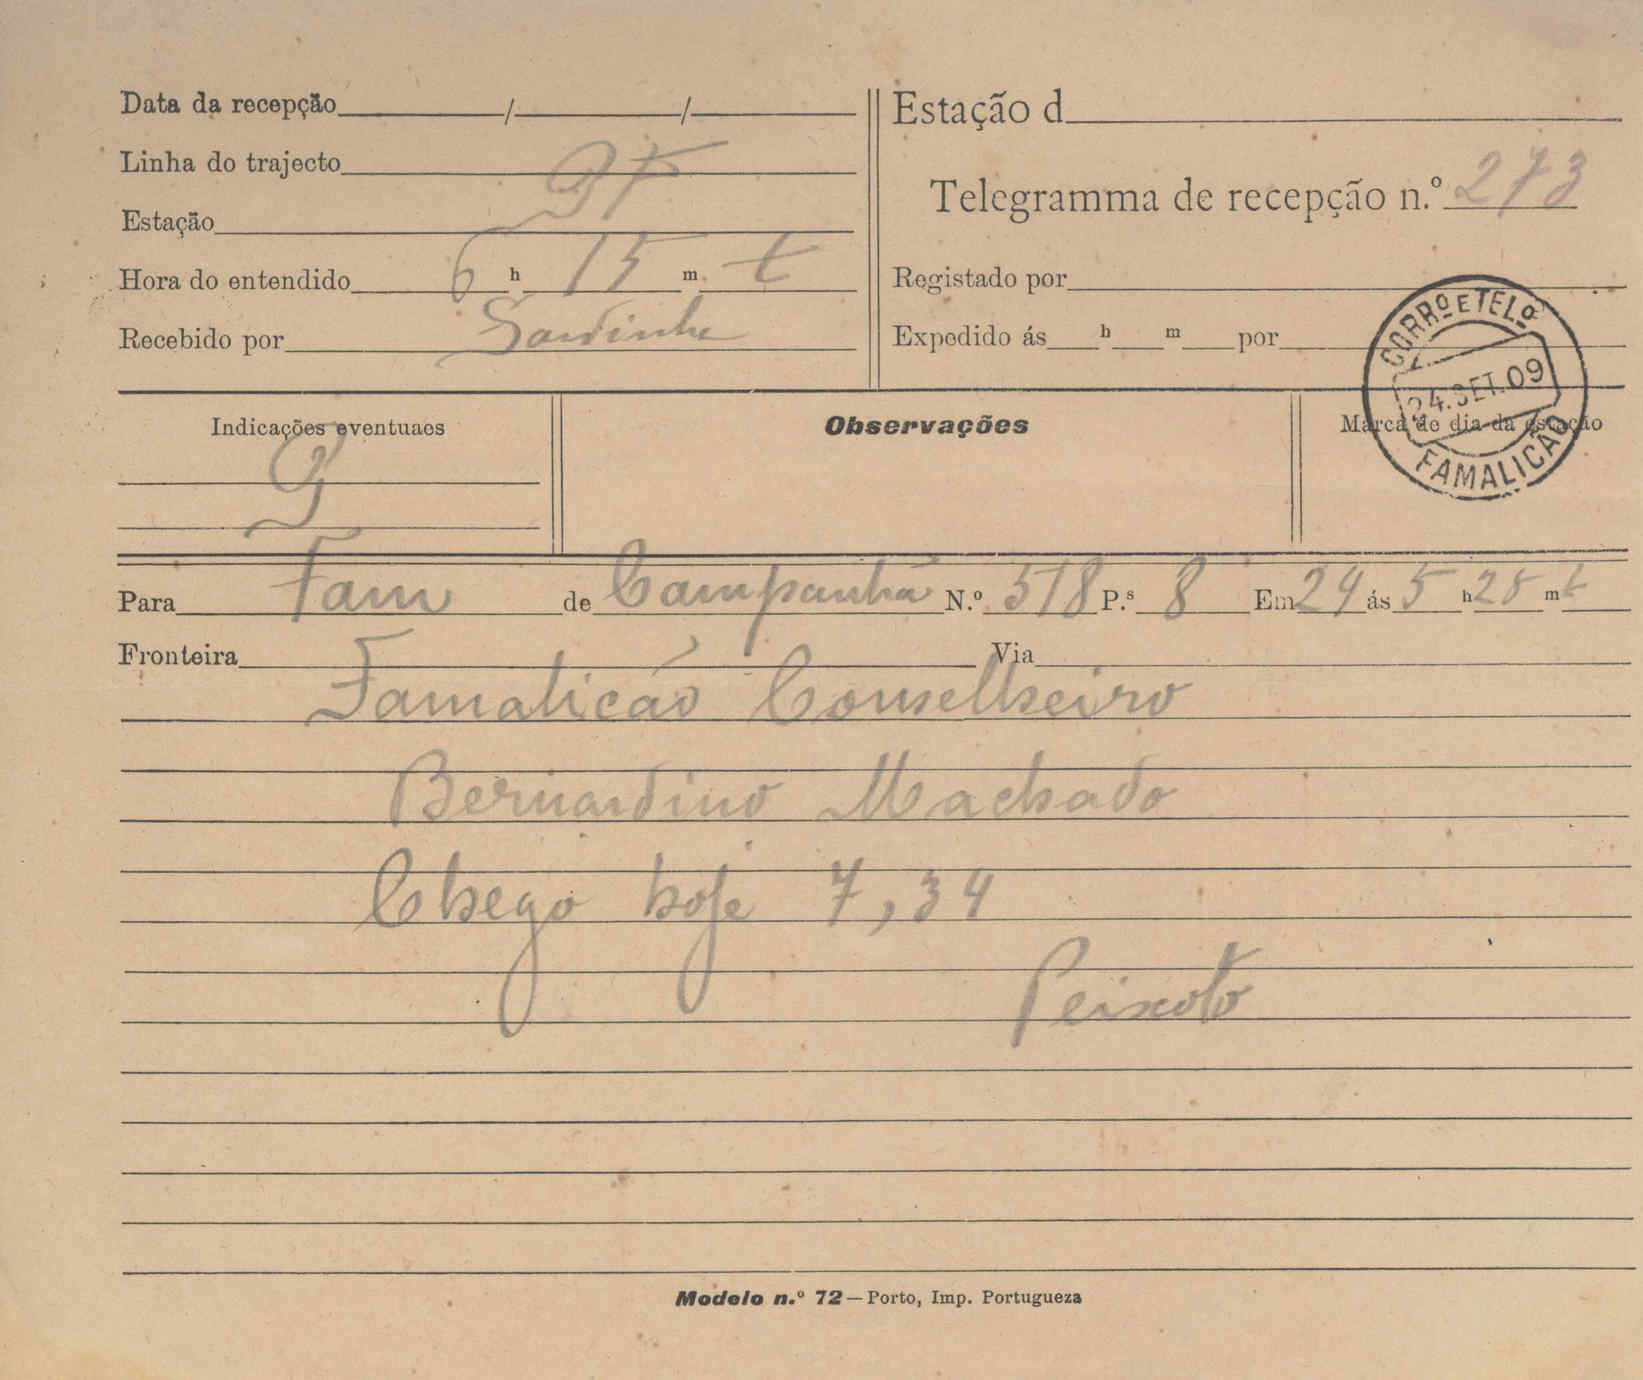 Data da recepção / /
Linha do trajecto
Estação
Hora do entendido 6 h 15 m t
Recebido por Sardinha
Estação d
Telegramma de recepção n.º 273
Registado por
Expedido ás h m por
CORRº E TELº
24. SET. 09
FAMALICÃO
Indicações eventuaes
Observações
Marca de dia da estação
Para Fam de Campanhã N.º 518 P.s 8 Em 24 ás 5 h 25 m t
Fronteira Via
Famalicão Conselheiro
Bernardino Machado
Chego hoje 7,34
Peixoto
Modelo n.º 72—Porto, Imp. Portugueza